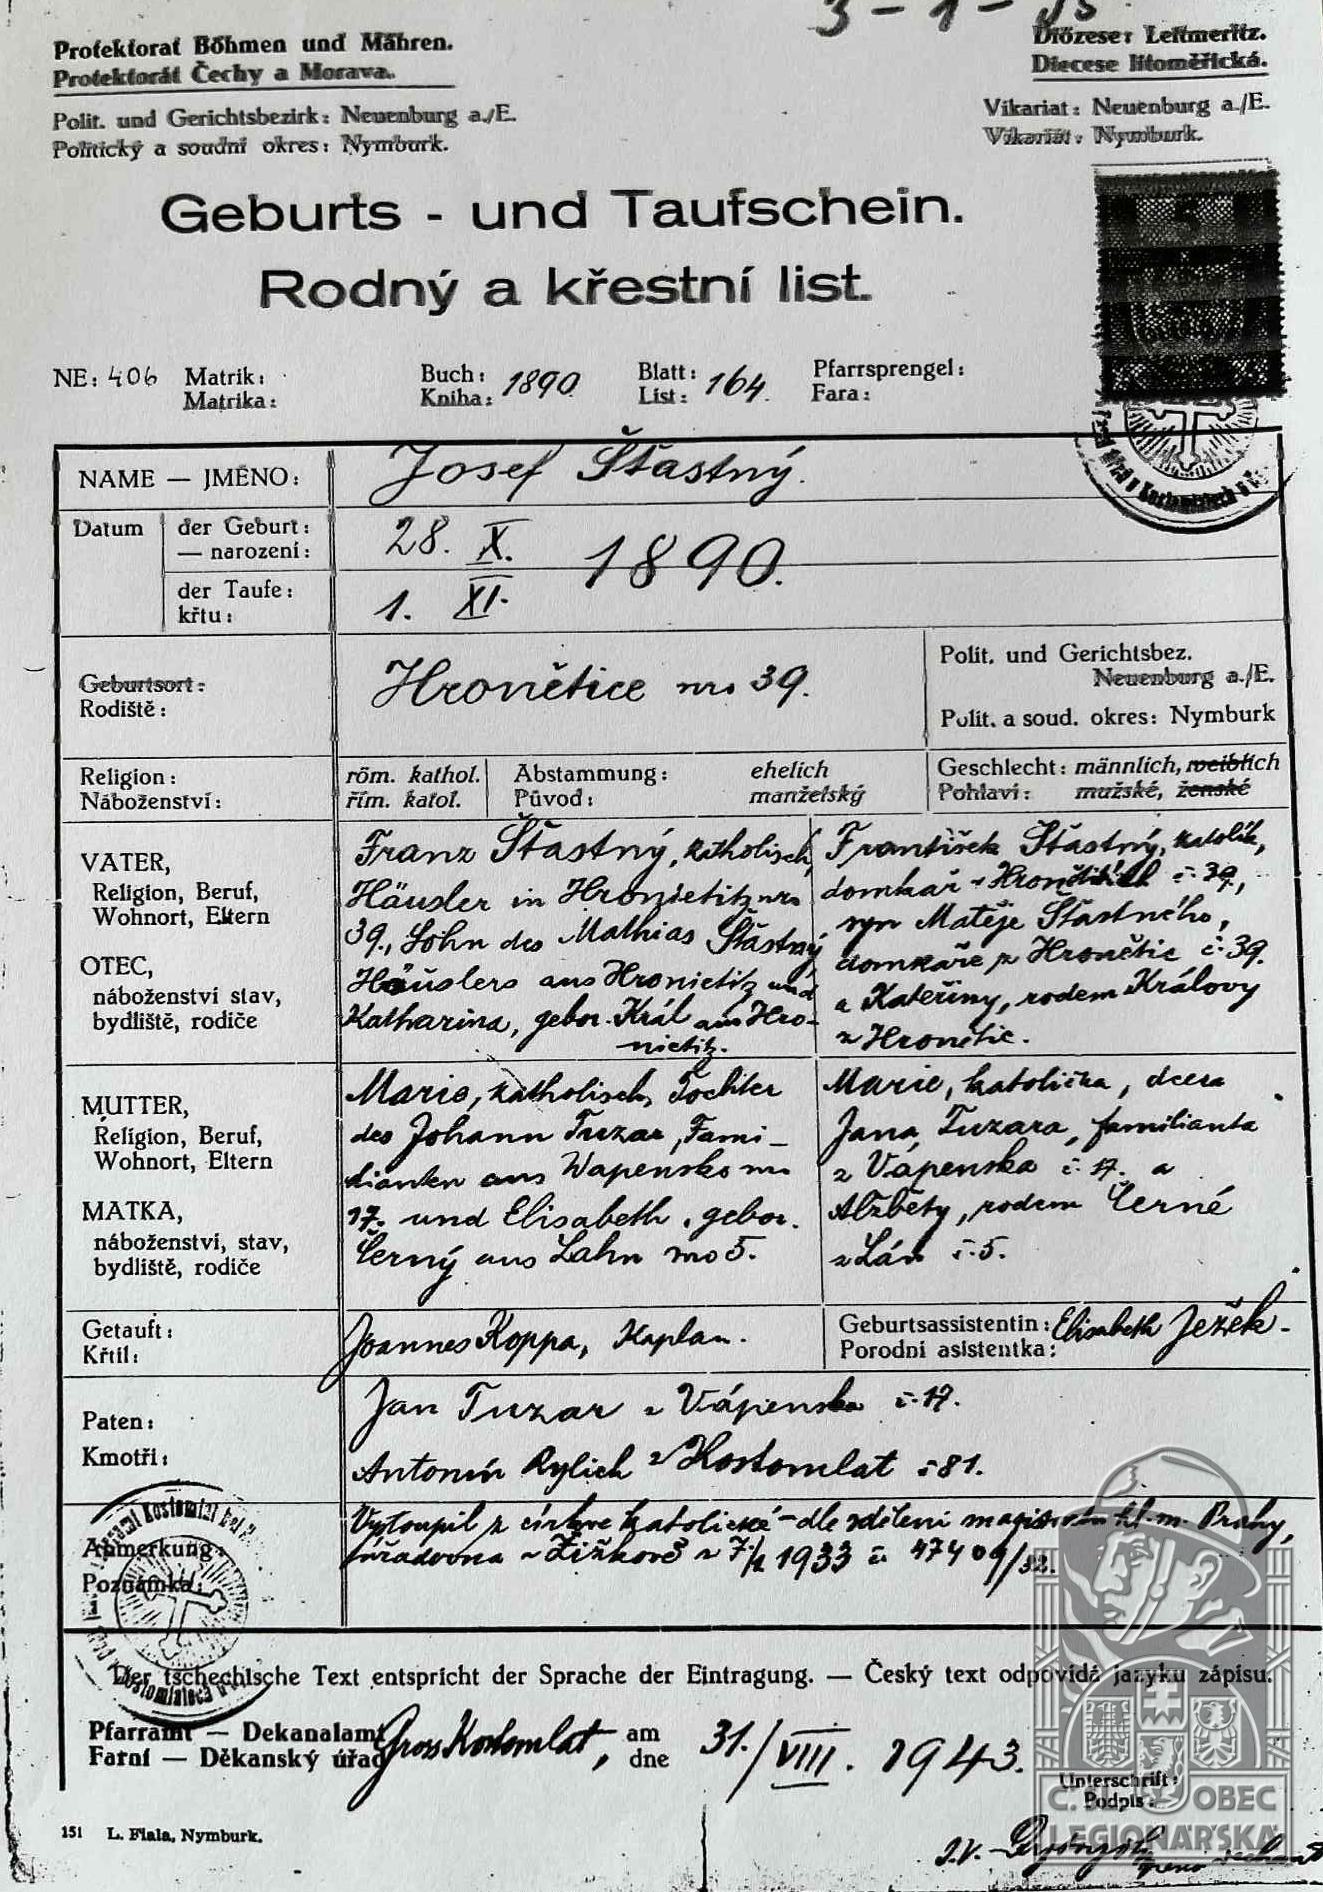 3 - 1 -
Protektorat Böhmen und Mähren.
Protektorát Čechy a Morava.
Diözese: Leitmeritz.
Diecese litoměřická.
Polit. und Gerichtsbezirk: Neuenburg a./E.
Politický a soudní okres: Nymburk.
Vikariat: Neuenburg a./E.
Vikariát: Nymburk.
5
Geburts - und Taufschein.
Rodný a křestní list.
NE: 406
Matrik:
Matrika:
Buch:
Kniha: 1890
Blatt:
List: 164.
Pfarrsprengel:
Fara:
NAME — JMÉNO: Josef Šťastný.
Datum
der Geburt:
— narození: 28. X. 1890.
der Taufe:
křtu: 1. XI.
Geburtsort:
Rodiště:
Hronětice nro 39.
Polit. und Gerichtsbez.
Neuenburg a./E.
Polit. a soud. okres: Nymburk
Religion:
Náboženství:
röm. kathol.
řím. katol.
Abstammung:
Původ:
ehelich
manželský
Geschlecht: männlich, weiblich
Pohlaví: mužské, ženské
VATER,
Religion, Beruf,
Wohnort, Eltern
OTEC,
náboženství stav,
bydliště, rodiče
Franz Šťastný, katholisch,
Häusler in Hronietitz nro
39., Sohn des Mathias Šťastný
Häuslers aus Hronietitz und
Katharina, gebor. Král aus Hro-
nietitz.
František Šťastný, katolík,
domkář v Hroněticích č. 39.,
syn Matěje Šťastného,
domkáře z Hronětic č. 39.
a Kateřiny, rodem Královy
z Hronětic.
MUTTER,
Religion, Beruf,
Wohnort, Eltern
MATKA,
náboženství, stav,
bydliště, rodiče
Marie, katholisch, Tochter
des Johann Tuzar, Fami-
lianten aus Wapensko nro
17. und Elisabeth, gebor.
Černý aus Lahn nro 5.
Marie, katolička, dcera
Jana Tuzara, familianta
z Vápenska č. 17. a
Alžběty, rodem Černé
z Lán č. 5.
Getauft:
Křtil:
Joannes Koppa, Kaplan.
Geburtsassistentin:
Porodní asistentka:
Elisabeth Ježek.
Paten:
Kmotři:
Jan Tuzar z Vápenska č. 17.
Antonín Rylich z Kostomlat č 81.
Anmerkung:
Poznámka:
Vystoupil z církve katolické - dle sdělení magistrátu hl. m. Prahy,
úřadovna v Žižkově z 7/1 1933 č. 47409/32.
Der tschechische Text entspricht der Sprache der Eintragung. — Český text odpovídá jazyku zápisu.
Pfarramt — Dekanalamt
Farní — Děkanský úřad
Gross Kostomlat,
am
dne
31./VIII. 1943.
Unterschrift:
Podpis:
J.V.
151 L. Fiala, Nymburk.
Č. S. OBEC
LEGIONÁŘSKÁ